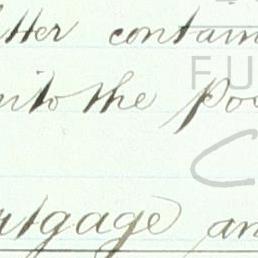 tter contain
into the Poc
rtgage an